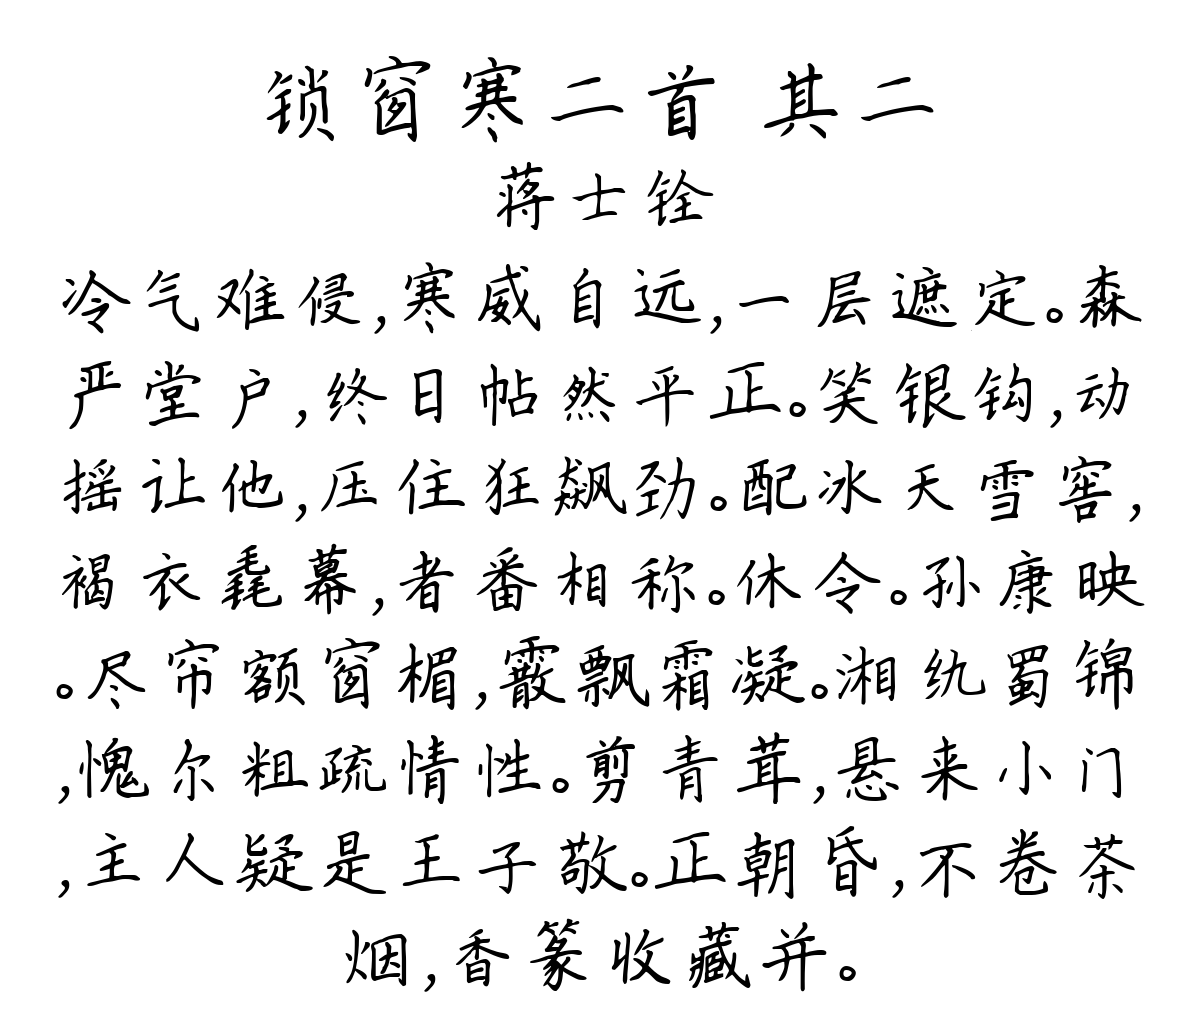 锁窗寒二首 其二
蒋士铨
冷气难侵,寒威自远,一层遮定。森
严堂户,终日帖然平正。笑银钩,动
摇让他,压住狂飙劲。配冰天雪窖,
褐衣毳幕,者番相称。休令。孙康映
。尽帘额窗楣,霰飘霜凝。湘纨蜀锦
,愧尔粗疏情性。剪青茸,悬来小门
,主人疑是王子敬。正朝昏,不卷茶
烟,香篆收藏并。